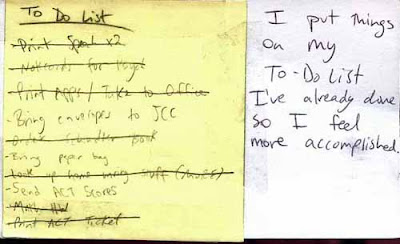 To Do List
Print Speech x2
Notecards for
Print Apps / Take to Office
- Bring envelopes to JCC
Order Schindler Book
- Bring paper bag
Look up stuff
- Send ACT Scores
Math HW
Print ACT Ticket
I put things
on my
To-Do List
I've already done
so I feel
more accomplished.